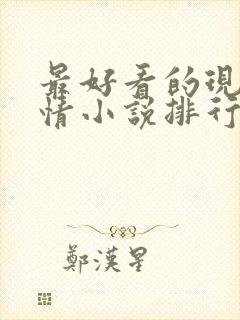 最好看的現
情小說排行
鄭漢星